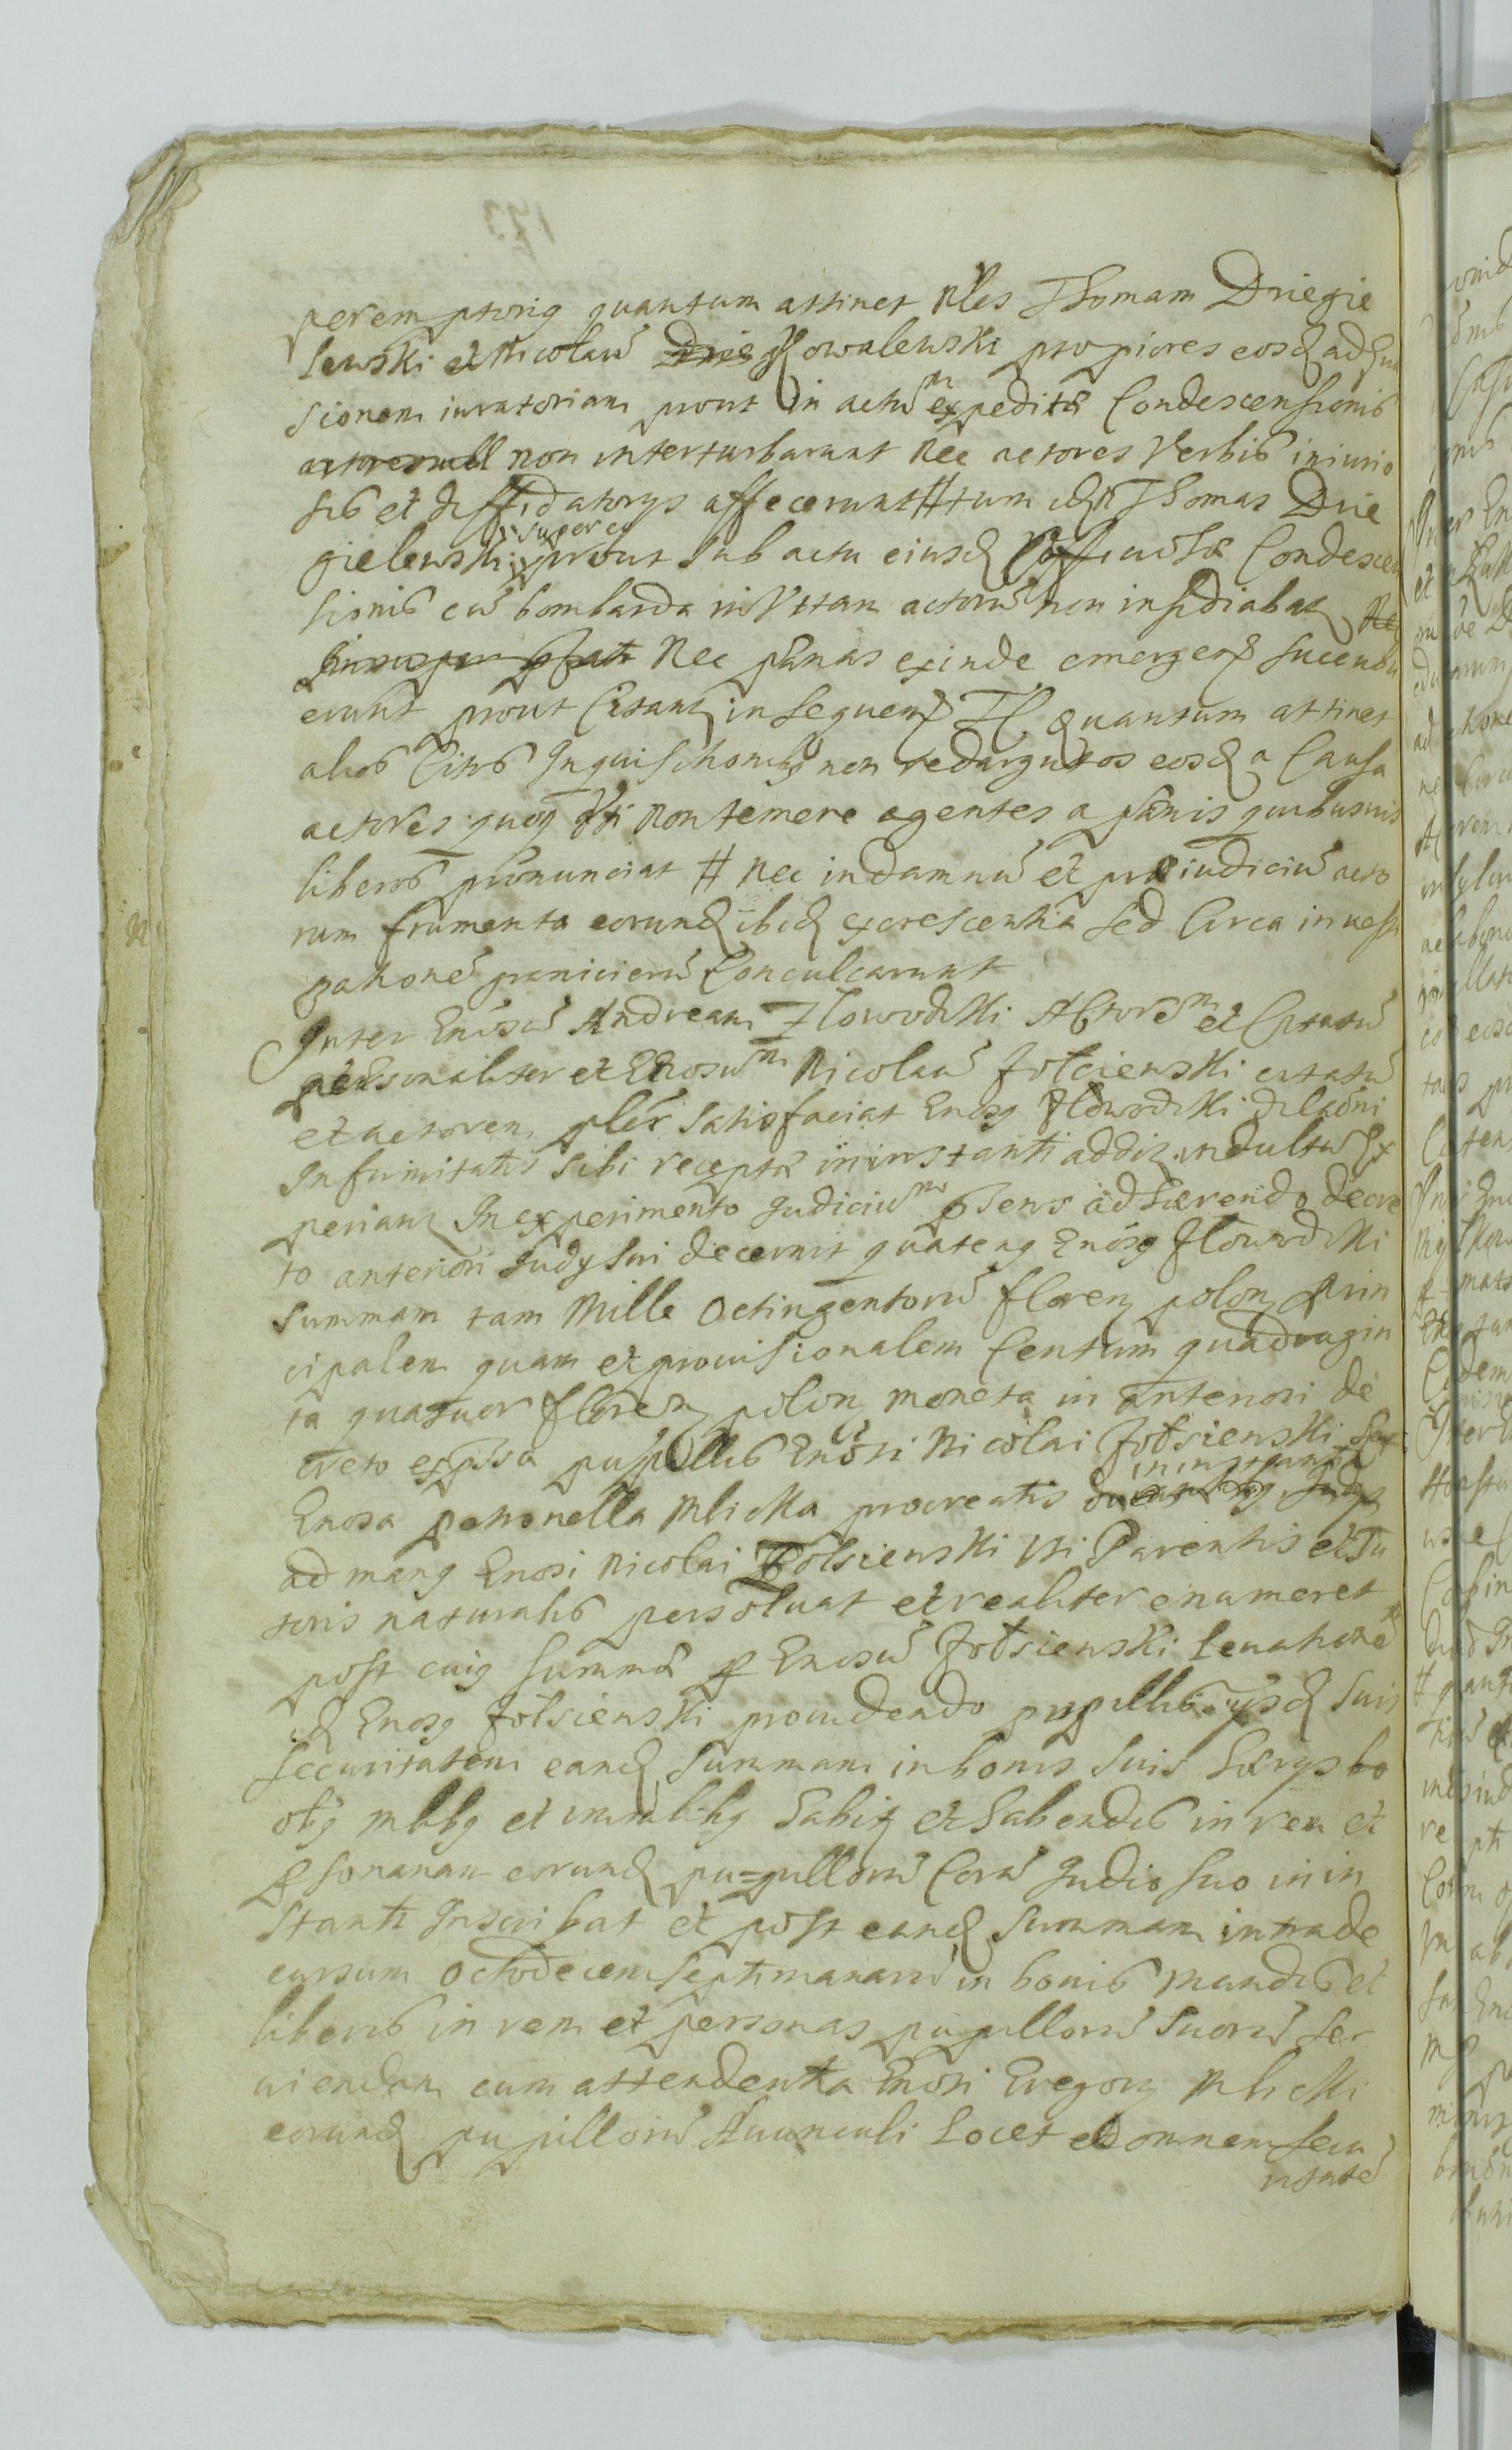 peremptorie quantum attinet Nles Thomam Driegie
lewski et Nicolaū Drie Kowalewski propiores eosd ad
sionem iuratoriam prout in actū expeditæ Condescensionis
non interturbarunt Nec actores Verbis iniurio
sis et diffidatorys affecerunt # tum Thomas Drie
gielewski super eū prout sub actu eiusd Condescen
sionis cū bombarda in Vitam actorū non insidiabat
Nec pænas exinde emergen succubu
erunt prout Citant in sequen quantum attinet
alios Citos Inquisitionibq non redargutos eosd a Causa
actores quoq Vti non temere agentes a pænis quibusuis
liberos pronunciat # Nec in damnū et præiudiciū acto
rum frumenta eorund ibid excrescentia sed Circa inuesti
gationē Conculcarunt
Inter Enosū Andream Zlowodzki Actorē et Citatū
personaliter et Enosū Nicolaū Zolciewski citatū
et actorem plēr Satisfaciat Enosq Zlowodzki dilaōni
Infirmitatis sibi receptæ in instanti addiz indultū Ex
periant In experimento Iudiciū psens adhærendo decre
to anteriori Iudy sui decernit quatenq Enosq Zlowodzki
summam tam Mille Octingentorū floren polon prin
cipalem quam et prouisionalem Centum quadragin
ta quatuor floren polon moneta in anteriori de
creto expssa pupillis Enosi Nicolai Zolsiewski cū
in instanti
Enosa Petronella Mlicka procreatis
ad manq Enosi Nicolai Zolsiewski Vti Parentis et Tu
toris naturalis persoluat et realiter enumeret
post cuiq summæ p Enosū Zolsiewski leuationē
id Enosq Zolsiewski prouidendo pupillis ysd suis
securitatem eand summam in bonis suis hærys bo
obq mbbq et immbbq habiz et habendis in rem et
psonam eorund pu=pullorū Corā Iudio suo in in
stanti Inscribat et post eand summam intra de
cursum Octodecem septimanarū in bonis mundis et
liberis in rem et personas pupillorū suorū ser
uiendam cum attendentia Enosi Gregory Mlicki
eorund pupillorū Auunculi Locet et omnem secu
ritatē